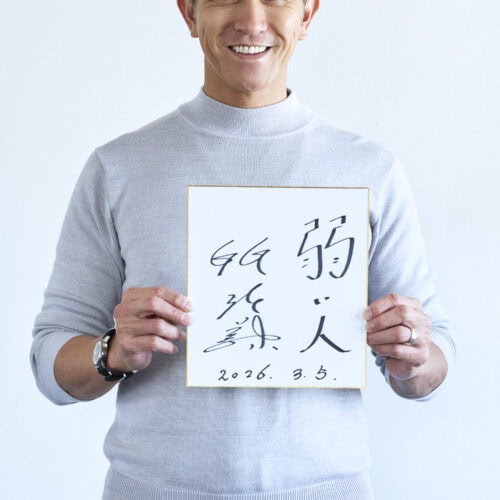 弱い人
2026. 3. 5.